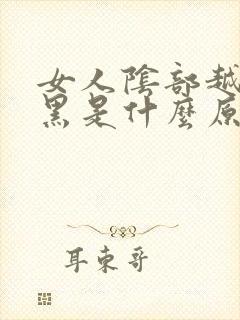 女人陰部越
黑是什麼原
耳東哥